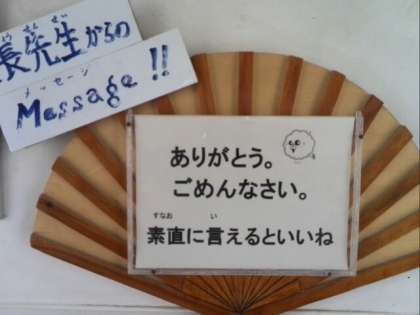 長先生からの
メッセージ
Message !!
ありがとう。
ごめんなさい。
すなお い
素直に言えるといいね